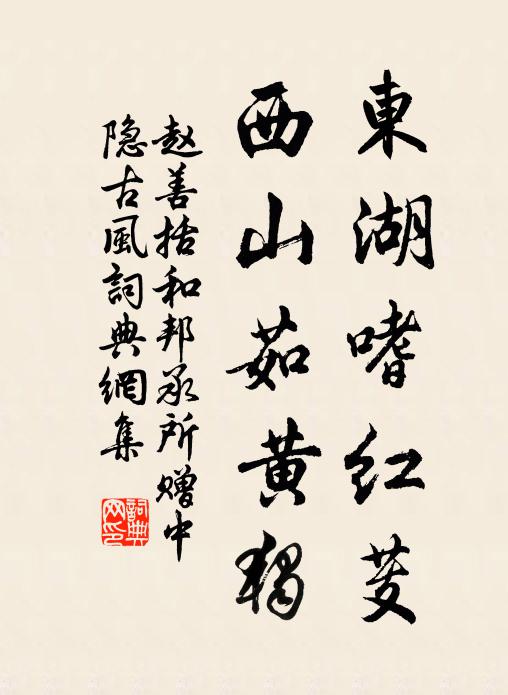 東湖嗜红芰
西山茹黄獨
赵善括和邦承所赠中
隐古風詞典網集
詞典
网印